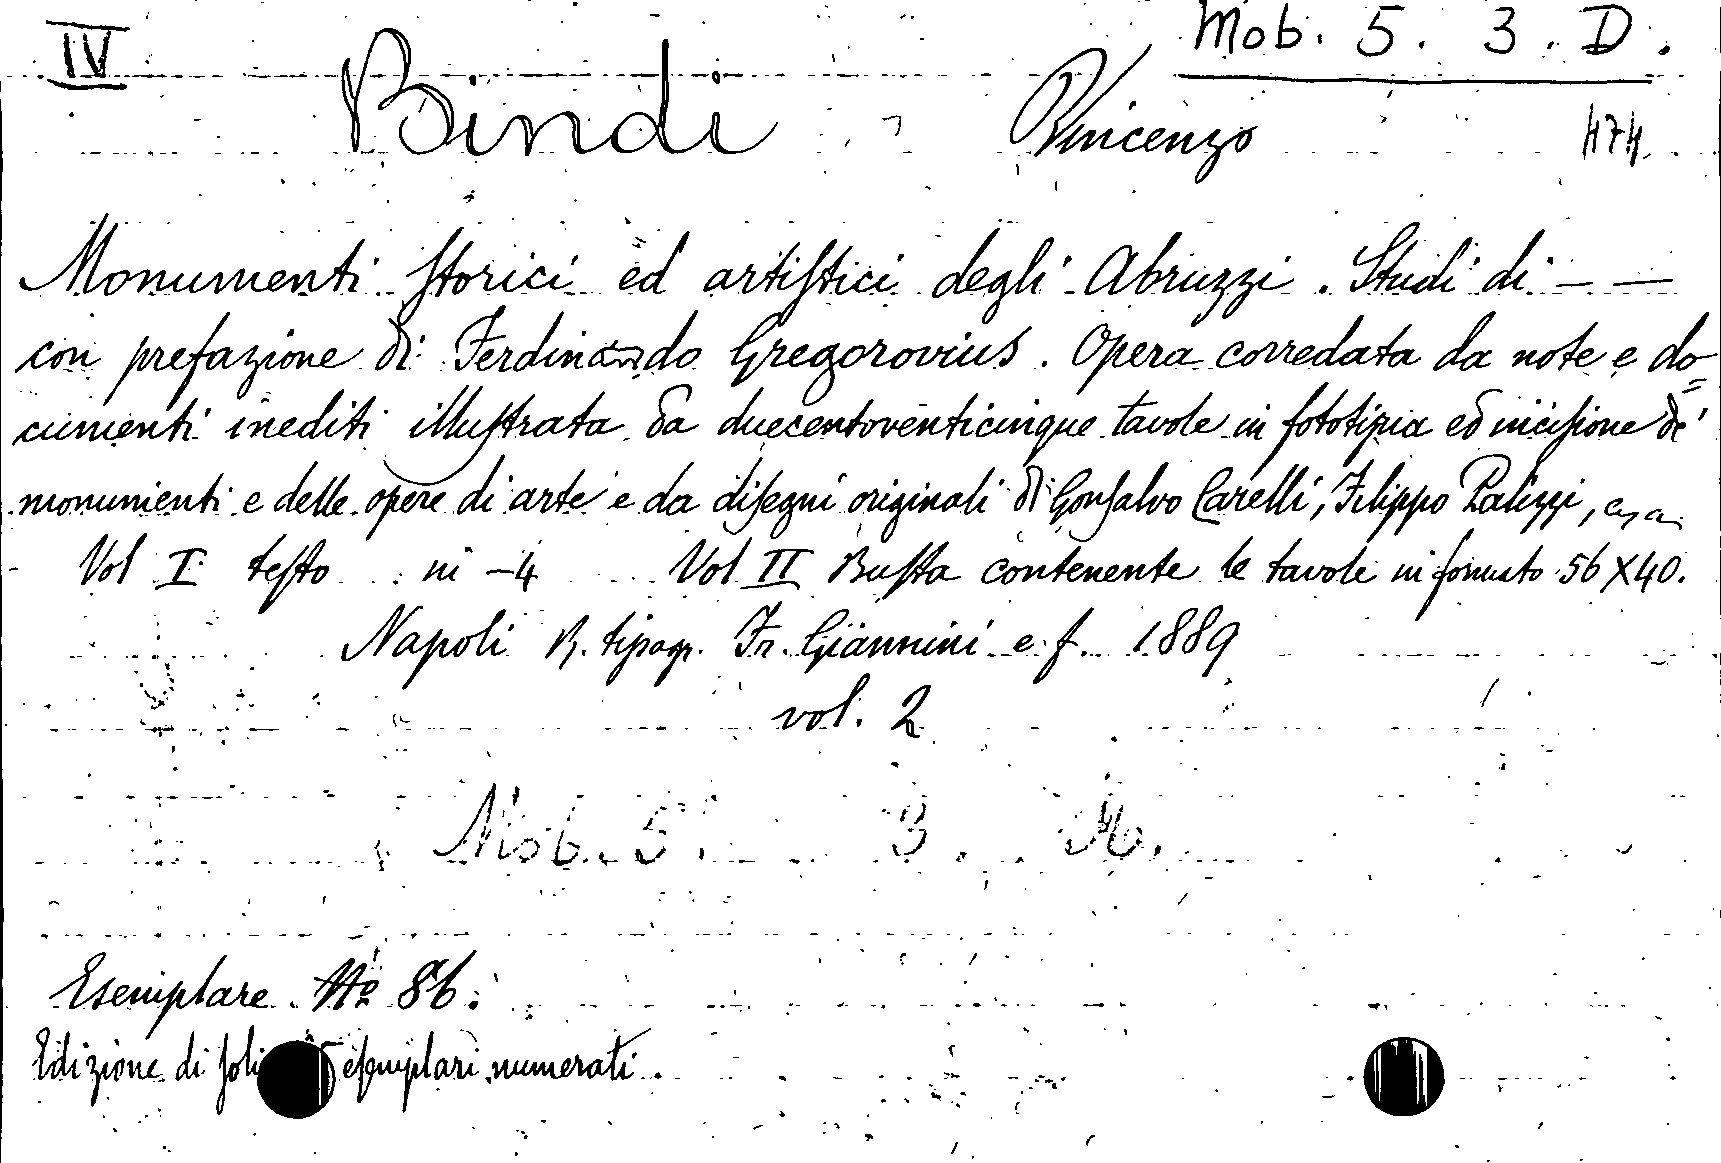 IV
Mob. 5. 3. D.
Bindi Vincenzo
474
Monumenti storici ed artistici degli Abruzzi. Studi di — —
con prefazione di Ferdinando Gregorovius. Opera corredata da note e do=
cumenti inediti illustrata da duecentoventicinque tavole in fototipia ed incisione de'
monumenti e delle opere di arte e da disegni originali di Gonsalvo Carelli, Filippo Palizzi,
Vol I testo in -4 Vol II Busta contenente le tavole in formato 56 X 40.
Napoli R. tipogr. Fr. Giannini e f. 1889
vol. 2
Mob. 5. 3. M.
Esemplare No 86.
Edizione di soli esemplari numerati.